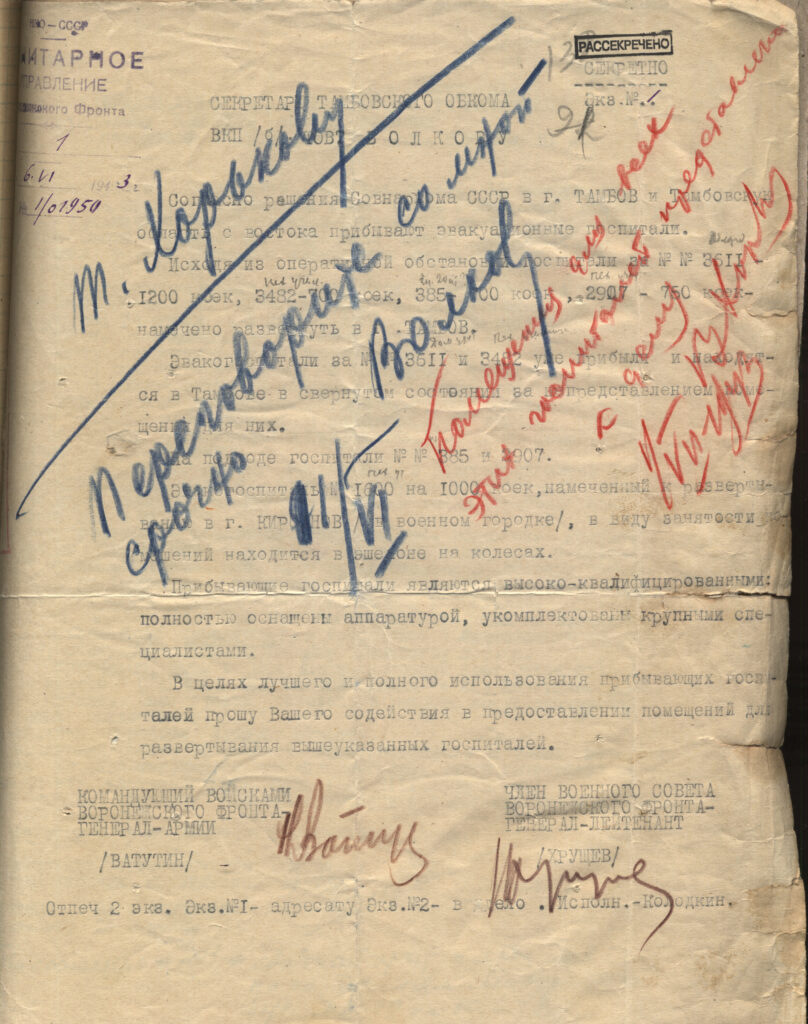 НКО-СССР
САНИТАРНОЕ
УПРАВЛЕНИЕ
Воронежского Фронта
1
6.VI 1943 г.
№ 1/01950
РАССЕКРЕЧЕНО
СЕКРЕТНО
Экз.№ 1
СЕКРЕТАРЮ ТАМБОВСКОГО ОБКОМА
ВКП /б/ ТОВ. ВОЛКОВУ
Согласно решения Совнаркома СССР в г. ТАМБОВ и Тамбовскую
область с востока прибывают эвакуационные госпитали.
Исходя из оперативной обстановки госпитали за № № 3611-
1200 коек, 3482-700 коек, 385- 700 коек, 2907 - 750 коек-
намечено развернуть в г. ТАМБОВ.
Эвакогоспитали за № № 3611 и 3482 уже прибыли и находят-
ся в Тамбове в свернутом состоянии за непредставлением поме-
щений для них.
На подходе госпитали № № 385 и 2907.
Эвакогоспиталь № 1600 на 1000 коек,намеченный к разверты-
ванию в г. КИРСАНОВ /в военном городке/, в виду занятости по-
мещений находится в эшелоне на колесах.
Прибывающие госпитали являются высоко-квалифицированными:
полностью оснащены аппаратурой, укомплектованы крупными спе-
циалистами.
В целях лучшего и полного использования прибывающих госпи-
талей прошу Вашего содействия в предоставлении помещений для
развертывания вышеуказанных госпиталей.
КОМАНДУЮЩИЙ ВОЙСКАМИ
ВОРОНЕЖСКОГО ФРОНТА-
ГЕНЕРАЛ-АРМИИ
/ВАТУТИН/
ЧЛЕН ВОЕННОГО СОВЕТА
ВОРОНЕЖСКОГО ФРОНТА-
ГЕНЕРАЛ-ЛЕЙТЕНАНТ
/ХРУЩЕВ/
Отпеч 2 экз. Экз.№1- адресату Экз.№2- в дело. Исполн.-Колодкин.
т. Хорькову
Переговорите со мной
срочно Волков
11/VI
Помещения для всех
этих госпиталей представлены
к делу